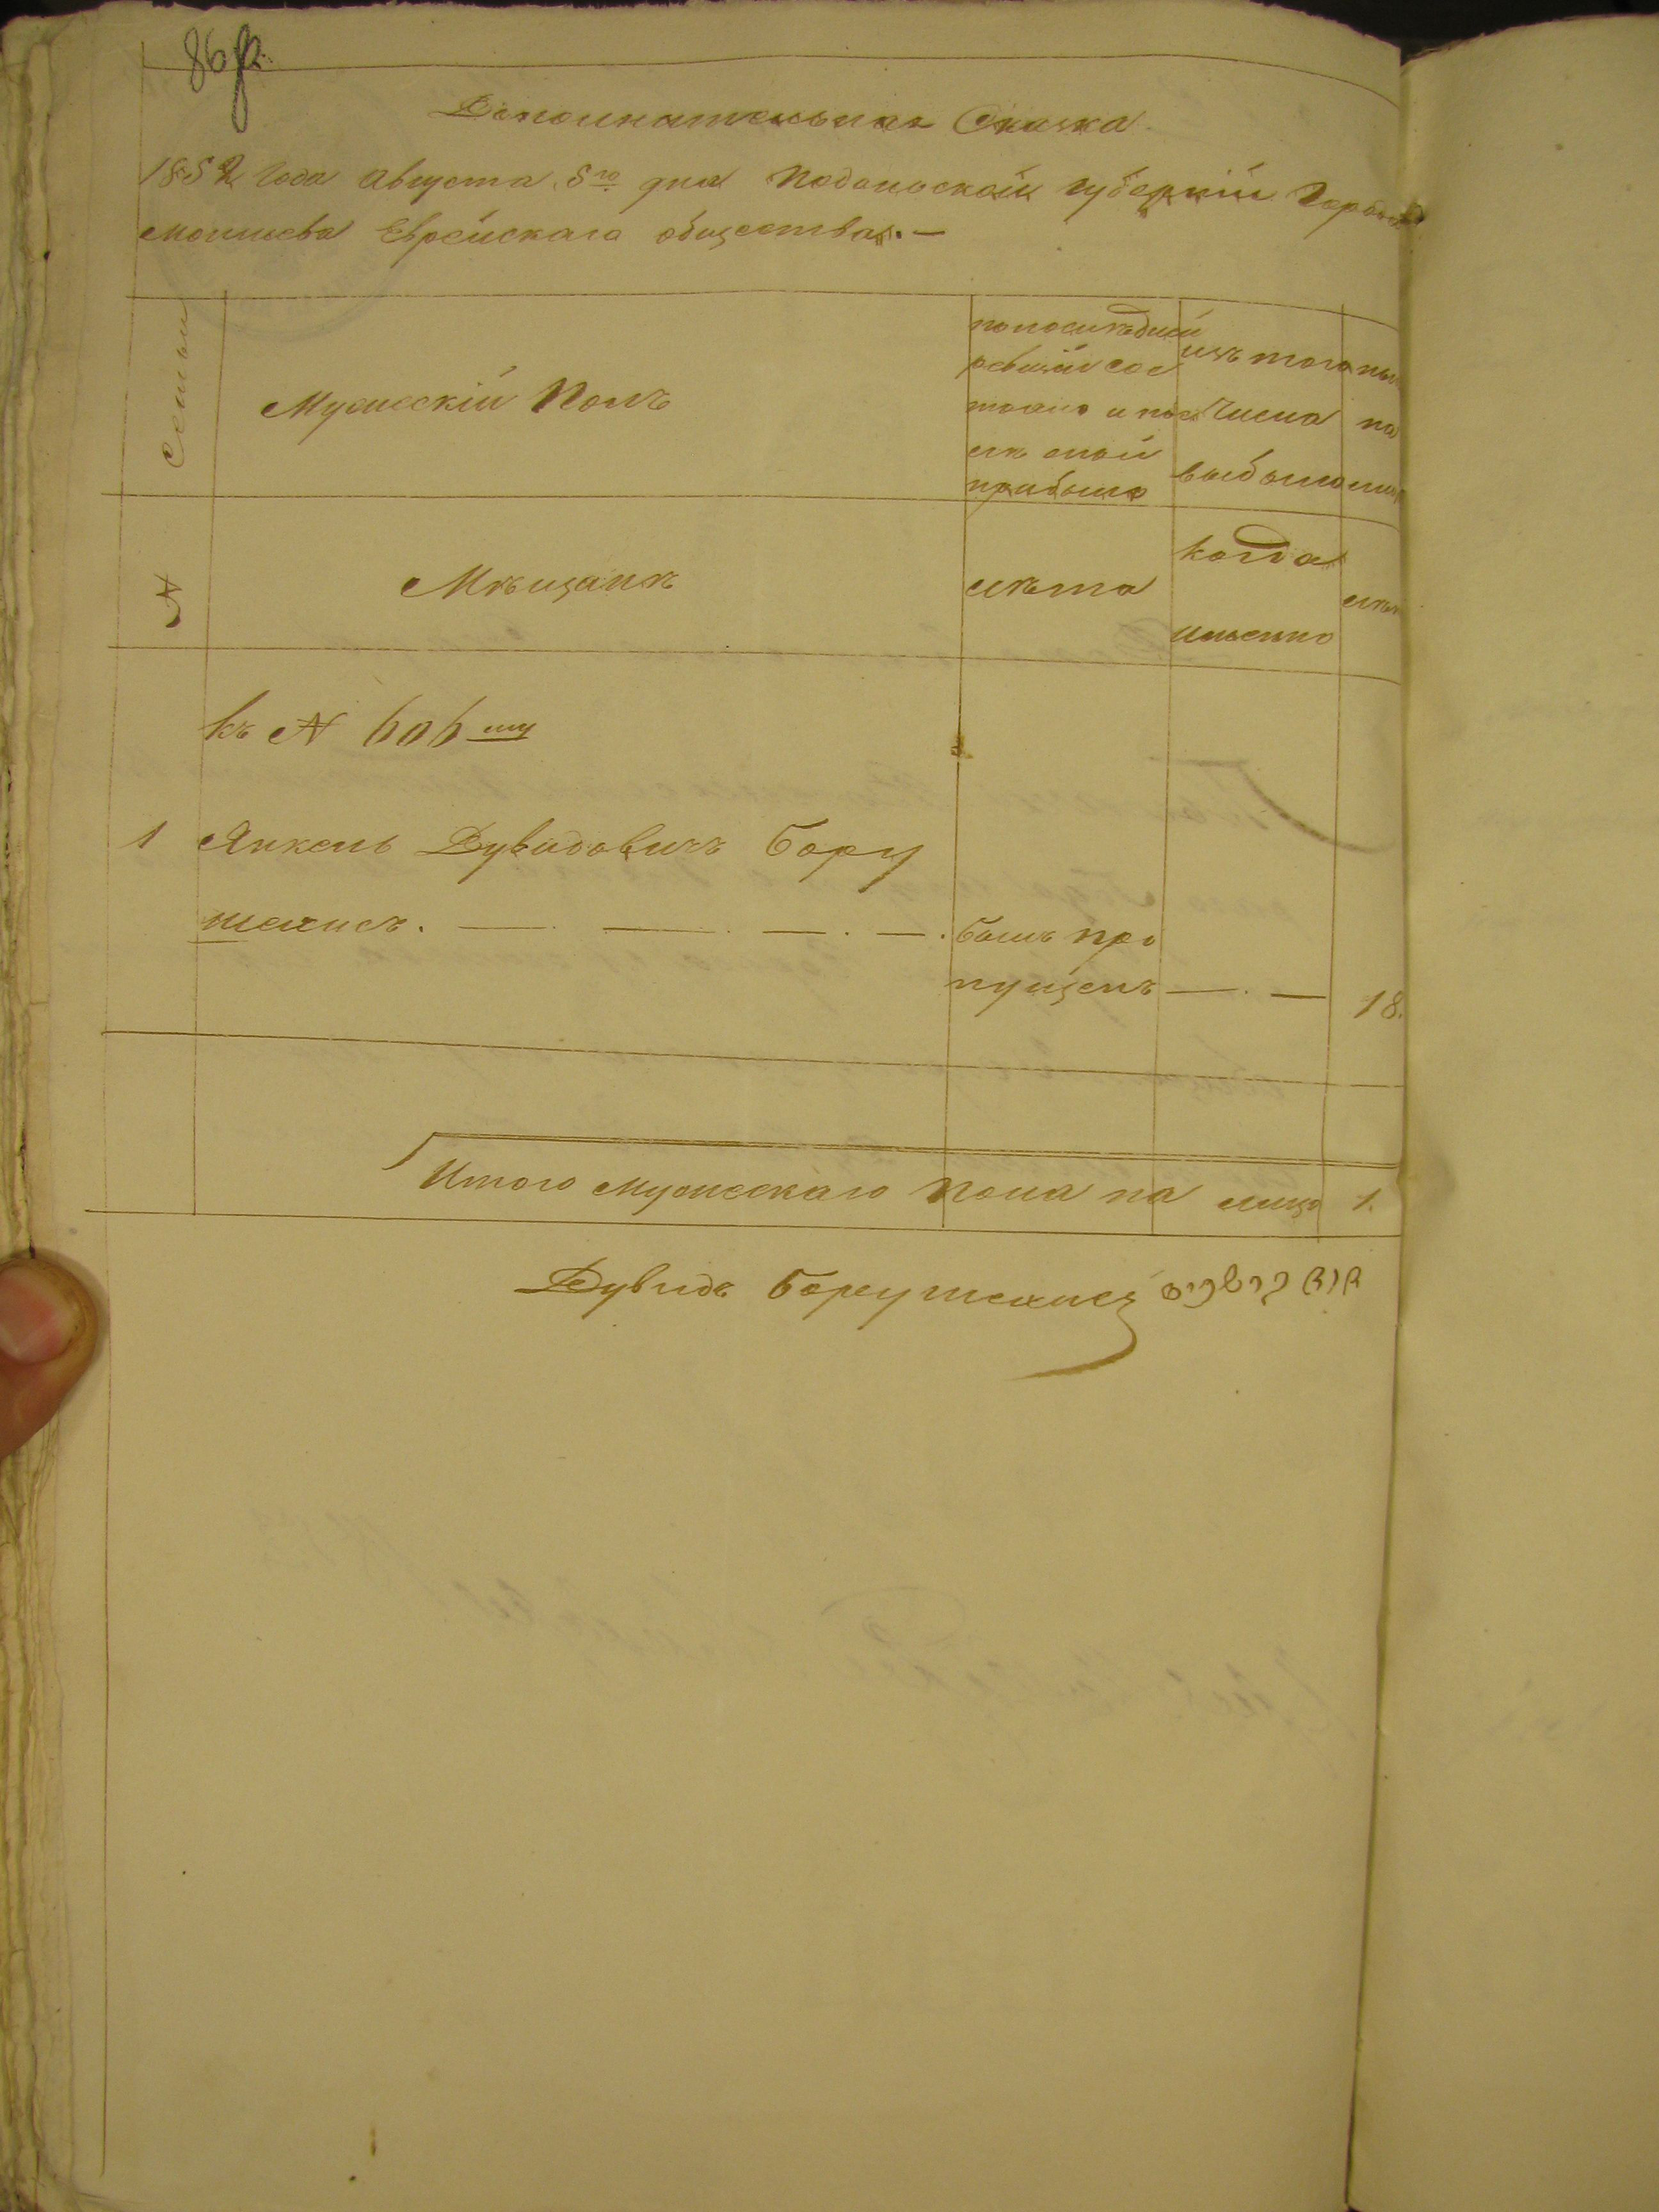 86
Дополнительная Сказка
1852 года Августа 5го дня Подольской губерніи Города
Могилева Еврейскаго общества. —
Семьи
Мужескій Полъ
по последней
ревизіи сос
тояло и пос
лѣ оной
прибыло
изъ того
числа
выбыло
ны
на
лиц
№
Мѣщанъ
лѣта
когда
именно
лѣт
Къ № 606му
1 Янкель Дувидовичъ Бору
шехисъ. — — — — . былъ про
пущенъ — . — 18.
Итого мужескаго пола на лицо 1.
Дувидъ Борушехисъ דוד